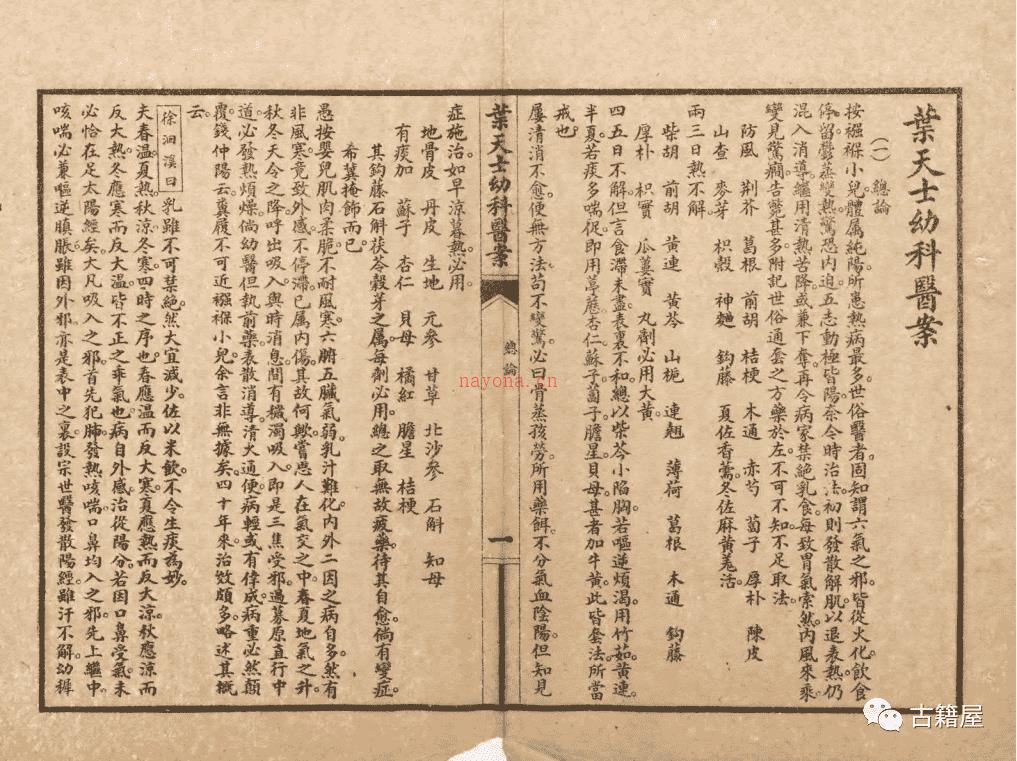 葉天士幼科醫案
(一) 總論
按襁褓小兒。體屬純陽。所患熱病最多。世俗醫者。固知謂六氣之邪。皆從火化。飲食
停留。鬱蒸變熱。驚恐內迫。五志動極皆陽。奈今時治法。初則發散解肌。以退表熱。仍
混入消導。繼用清熱苦降。或兼下奪。再令病家禁絕乳食。每致胃氣索然。內風來乘。
變見驚癇。告斃甚多。附記世俗通套之方藥於左。不可不知。不足取法。
防風 荆芥 葛根 前胡 桔梗 木通 赤芍 蔔子 厚朴 陳皮
山查 麥芽 枳殼 神麯 鈎藤 夏佐香薷。冬佐麻黃羌活。
兩三日熱不解
柴胡 前胡 黃連 黃芩 山梔 連翹 薄荷 葛根 木通 鈎藤
厚朴 枳實 瓜蔞實 丸劑必用大黃。
四五日不解。但言食滯未盡。表裏不和。總以柴芩小陷胸。若嘔逆煩渴。用竹茹黃連。
半夏。若痰多喘促。即用葶藶。杏仁。蘇子。蔔子。膽星。貝母。甚者加牛黃。此皆套法。所當
戒也。
屢清消不愈。便無方法。苟不變驚。必曰骨蒸孩勞。所用藥餌。不分氣血陰陽。但知見
葉天士幼科醫案
總論
一
症施治。如早涼暮熱。必用。
地骨皮 丹皮 生地 元參 甘草 北沙參 石斛 知母
有痰加 蘇子 杏仁 貝母 橘紅 膽星 桔梗
其鈎藤石斛茯苓穀芽之屬。每劑必用。總之取無故疲藥。待其自愈。倘有變症。
希冀掩飾而已。
愚按嬰兒肌肉柔脆。不耐風寒。六腑五臟氣弱。乳汁難化。內外二因之病自多。然有
非風寒竟致外感。不停滯已屬內傷。其故何歟。嘗思人在氣交之中。春夏地氣之升。
秋冬天令之降。呼出吸入。與時消息。間有穢濁吸入。即是三焦受邪。過募原直行中
道。必發熱煩燥。倘幼醫但執前藥。表散消導。清火通便。病輕或有倖成。病重必然顛
覆。錢仲陽云。糞履不可近襁褓小兒。余言非無據矣。四十年來。治效頗多。略述其概
云。
徐洄溪曰 乳雖不可禁絕。然大宜減少。佐以米飲。不令生痰為妙。
夫春溫夏熱。秋涼冬寒。四時之序也。春應溫而反大寒。夏應熱而反大涼。秋應涼而
反大熱。冬應寒而反大溫。皆不正之乖氣也。病自外感。治從陽分。若因口鼻受氣。未
必恰在足太陽經矣。大凡吸入之邪。首先犯肺。發熱咳喘。口鼻均入之邪。先上繼中。
咳喘必兼嘔逆䐜脹。雖因外邪。亦是表中之裏。設宗世醫發散陽經。雖汗不解。幼稚
nayona.cn
古籍屋